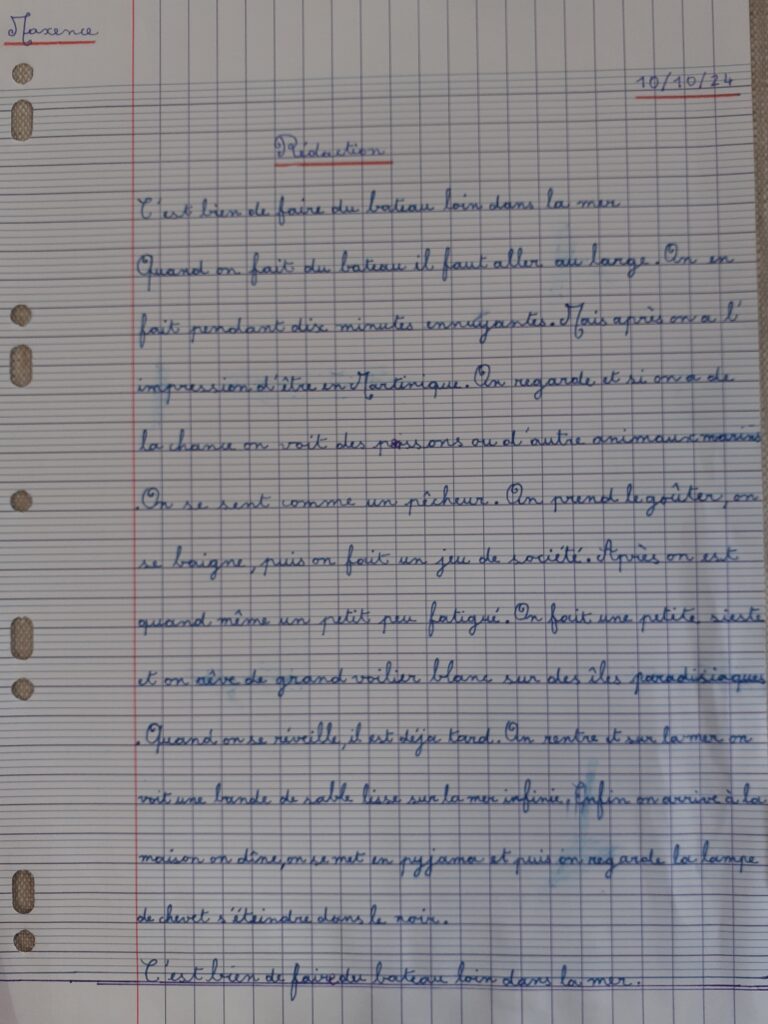 Maxence
10/10/24
Rédaction
C'est bien de faire du bateau loin dans la mer
Quand on fait du bateau il faut aller au large. On en
fait pendant dix minutes ennuyantes. Mais après on a l'
impression d'être en Martinique. On regarde et si on a de
la chance on voit des poissons ou d'autre animaux marins
. On se sent comme un pêcheur. On prend le goûter, on
se baigne, puis on fait un jeu de société. Après on est
quand même un petit peu fatigué. On fait une petite sieste
et on rêve de grand voilier blanc sur des îles paradisiaques
. Quand on se réveille, il est déja tard. On rentre et sur la mer on
voit une bande de sable lisse sur la mer infinie. Enfin on arrive à la
maison on dîne, on se met en pyjama et puis on regarde la lampe
de chevet s'éteindre dans le noir.
C'est bien de faire du bateau loin dans la mer.